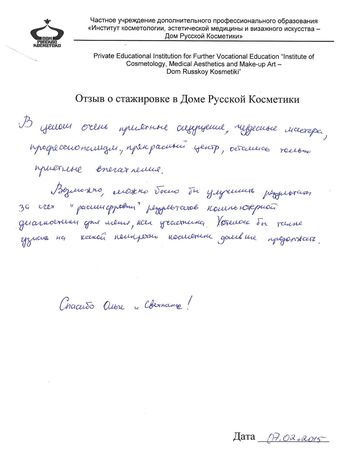 Частное учреждение дополнительного профессионального образования
«Институт косметологии, эстетической медицины и визажного искусства –
Дом Русской Косметики»
Private Educational Institution for Further Vocational Education "Institute of
Cosmetology, Medical Aesthetics and Make-up Art –
Dom Russkoy Kosmetiki"
ДОМ
РУССКОЙ
КОСМЕТИКИ
Отзыв о стажировке в Доме Русской Косметики
В целом очень приятные ощущения, чудесные мастера,
профессионализм, прекрасный центр, остались только
приятные впечатления.
Возможно, можно было бы улучшить результат
за счет "расшифровки" результатов компьютерной
диагностики для меня, как участника. Хотелось бы также
узнать на какой конкретно косметике дальше продолжать.
Спасибо Ольге и Светлане!
Дата 07.02.2015